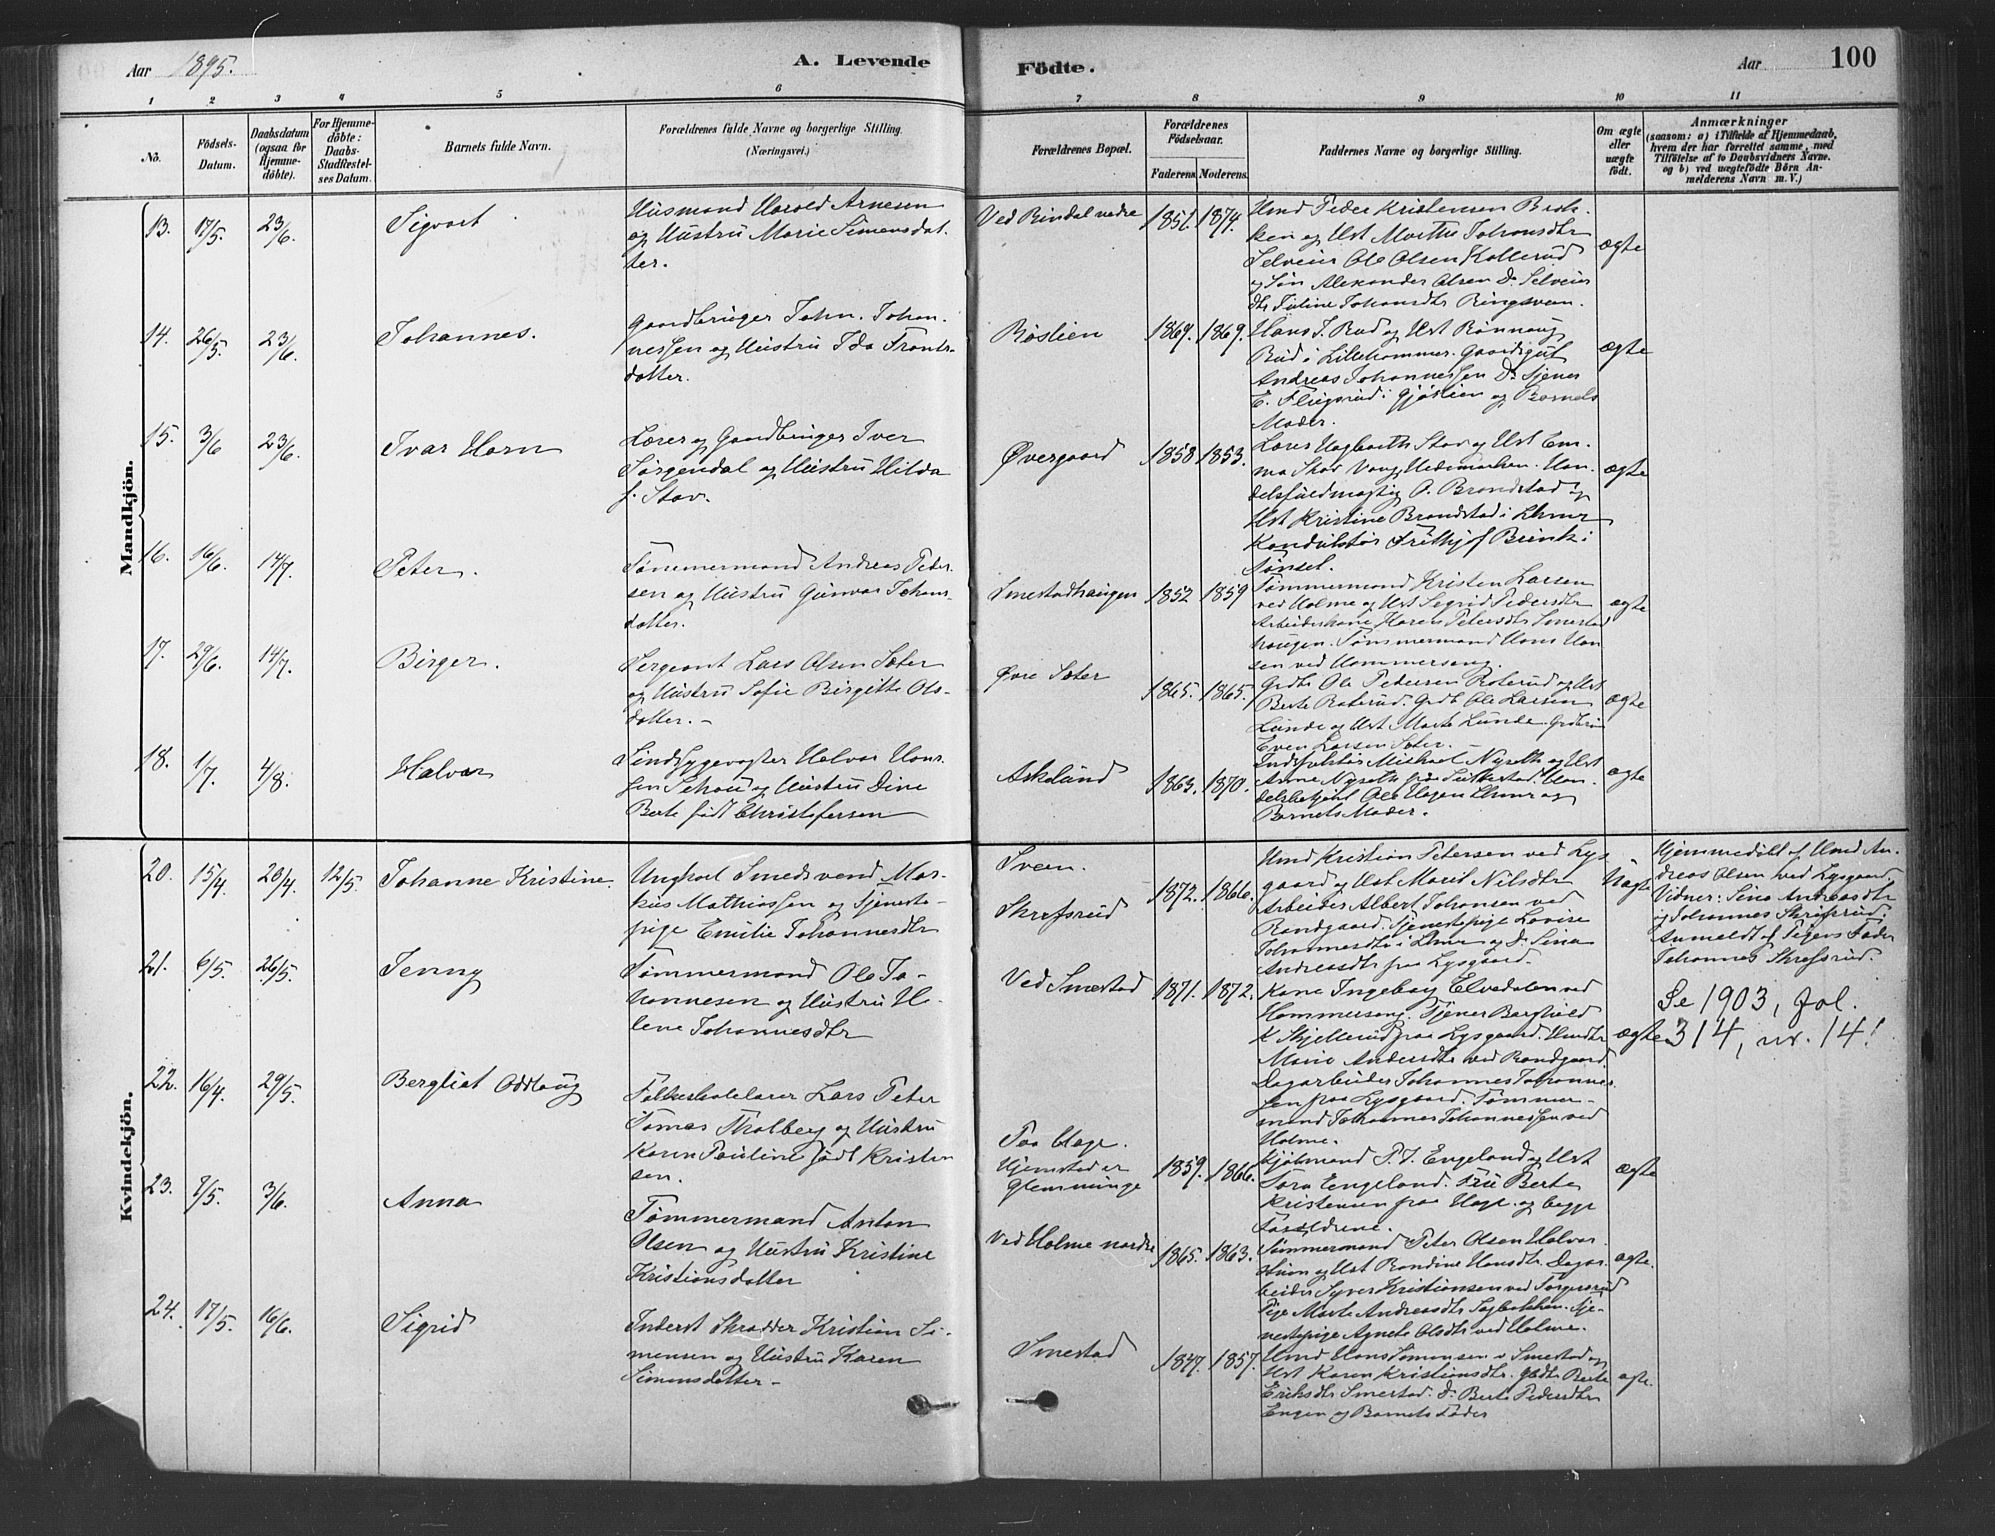 Aar 1895.
A. Levende
Födte.
Aar
100
1 2 3 4 5 6 7 8 9 10 11
Nö.
Födsels-
Datum.
Daabsdatum
(ogsaa for
Hjemme-
döbte).
For Hjemme-
döbte:
Daabs-
Stadfæstel-
ses Datum.
Barnets fulde Navn.
Forældrenes fulde Navne og borgerlige Stilling.
(Næringsvei.)
Forældrenes Bopæl.
Forældrenes
Födselsaar.
Faderens. Moderens.
Faddernes Navne og borgerlige Stilling.
Om ægte
eller
uægte
födt.
Anmærkninger
(saasom: a) i Tilfælde af Hjemmedaab,
hvem der har forrettet samme, med
Tilföielse af to Daabsvidners Navne.
og b) ved uægtefödte Börn An-
melderens Navn m. V.)
Mandkjön.
13. 17/5. 23/6. Sigvart
Husmand Harald Arnesen
og Hustru Marie Simensdat
ter.
Ved Rindal nedre 1851. 1874.
Hmd Peder Kristensen Bak-
ken og Hst Marthe Johansdtr
Selveier Ole Olsen Kollerud
og Søn Alexander Olsen Ds Selveier
dtr Juline Johansdtr Ringsveen.
ægte
14. 26/5. 23/6. Johannes.
Gaardbruger John. Johan-
nessen og Hustru Ida Frants-
datter.
Røslien 1869. 1869.
Hans J. Rud og Hst Rønnaug
Rud i Lillehammer. Gaardsgut
Andreas Johannessen Ds Tjener
E. Flugsrud i Gjøslien og Barnets
Moder.
ægte
15. 3/6 23/6. Ivar Horn
Lærer og Gaardbruger Iver
Jørgendal og Hustru Hilda
f. Stav.
Øvergaard 1858 1853.
Lærer Hagbarth Stav og Hst Em-
ma Stav Vang Hedemarken. Han-
delsfuldmægtig O. Brandstad og
Hst Kristine Brandstad i Lhmr
Konduktør Frithjof Brink i
Tønset.
ægte
16. 16/6. 14/7. Peter.
Tømmermand Andreas Peder-
sen og Hustru Gunvar Johans-
datter.
Smestadhaugen 1852 1859
Tømmermand Kristen Larsen
ved Holme og Hst Segrid Pedersdtr
Arbeiderkone Karen Petersdtr Smestad
haugen. Tømmermand Hans Han
sen ved Hammerseng.
ægte
17. 29/6. 14/7. Birger.
Sergeant Lars Olsen Sæter
og Hustru Sofie Birgitte Ols-
datter. -
Øvre Sæter 1865. 1865.
Grdbr Ole Pedersen Roterud og Hst
Berte Roterud. Grdbr Ole Larsen
Lunde og Hst Marte Lunde. Grdbr
Even Larsen Sæter. -
ægte
18. 1/7. 4/8. Halvar
Sindssygevogter Halvar Hans-
sen Schou og Hustru Dine
Berte født Christofersen
Askelund 1863. 1870.
Michael Nyseth og Hst
Anne Nyseth fra Sukkestad. Han-
delsbetjent Ole Hagen Lhmr og
Barnets Moder.
ægte
Kvindekjön.
20. 15/4. 20/4. 12/5. Johanne Kristine.
Ungkarl Smedsvend Mar-
kus Mathiassen og Tjeneste-
pige Emilie Johannesdtr
Sveen.
Skrefsrud 1872. 1866.
Hmd Kristian Petersen ved Lys
gaard og Hst Marit Nilsdtr
Arbeider Albert Johansen ved
Randgaard. Tjenestepige Lovise
Johannesdtr i Lhmr og Ds Sina
Andreasdtr paa Lysgaard.
Uægte
Hjemmedøbt af Hmd An-
dreas Olsen ved Lysgaard.
Vidner: Sina Andreasdtr
og Johannes Skrefsrud.
Anmeldt af Pigens Fader
Johannes Skrefsrud.
21. 6/5. 26/5. Jenny
Tømmermand Ole Jo-
hannesen og Hustru He-
lene Johannesdtr
Ved Smestad 1871. 1872.
Kone Ingeborg Elvedalen ved
Hammerseng. Tjener Borghild
K Skjellerud paa Lysgaard. Hmdtr
Marie Andersdtr ved Randgaard
Dagarbeider Johannes Johannes-
sen paa Lysgaard. Tømmer-
mand Johannes Johannessen ved
Holme.
ægte
Se 1903, fol.
314, nr. 14!
22. 16/4. 29/5. Bergliot Oddlaug
Folkeskolelærer Lars Peter
Tomas Tholberg og Hustru
Karen Pauline født Kristen
sen.
Paa Hage.
Hjemsted er
Glemminge 1859. 1866.
Kjøbmand P. J. Engeland og Hst
Tora Engeland. Fru Berte
Kristensen paa Hage. og begge
Forældrene.
ægte
23. 7/5. 3/6. Anna
Tømmermand Anton
Olsen og Hustru Kristine
Kristiansdatter
Ved Holme nordre 1865. 1863.
Tømmermand Peter Olsen Halvar
stuen og Hst Randine Hansdtr. Dagar-
beider Syver Kristiansen ved Jorgesrud
Pige Marte Andreasdtr Sagbakken. Tje-
nestepige Agnete Olsdtr ved Holme.
ægte.
24. 17/5. 16/6. Sigrid
Inderst Skradder Kristian Si-
mensen og Hustru Karen
Simensdatter -
Smestad 1847. 1857.
Hmd Hans Simensen v Smestad og
Hst Karen Kristiansdtr. Gbdtr Berte
Eriksdtr Smestad. Ds Berte Pedersdtr
Engen og Barnets Fader
ægte.